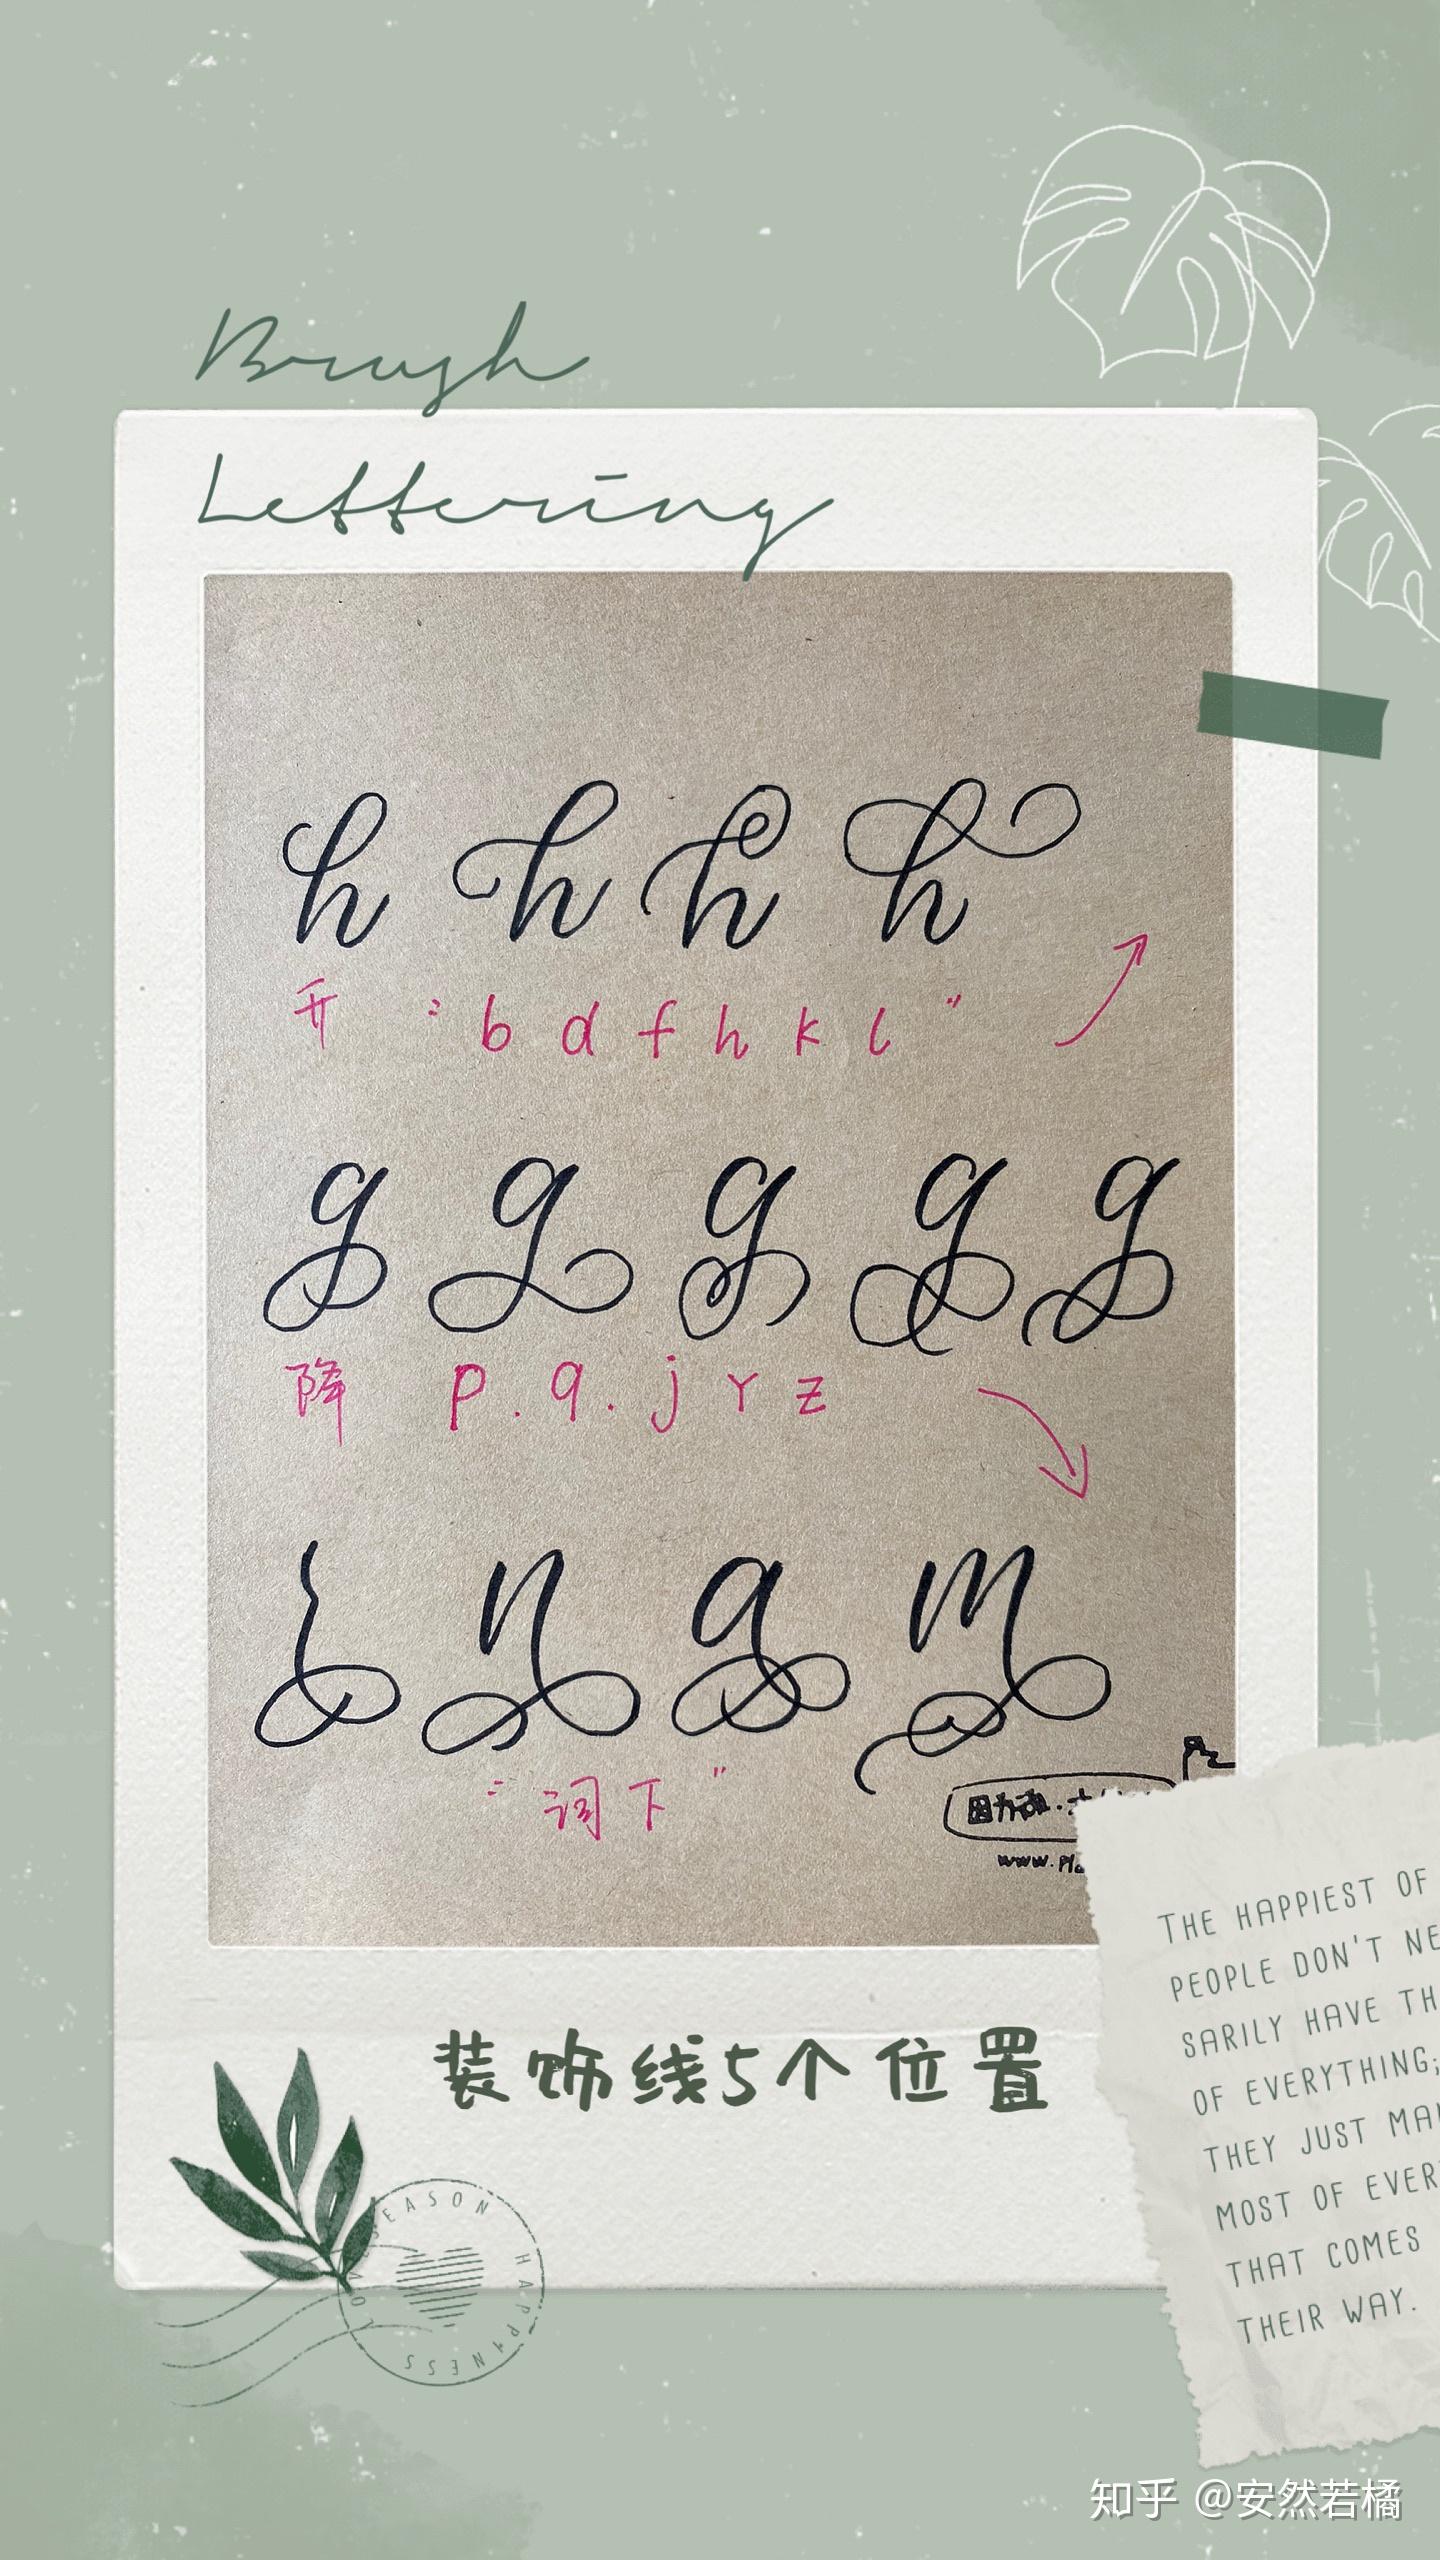 Brush
Lettering
h h h h
升 " b d f h k l "
g g g g g
降 p . q . j Y z
n a m
" 词下 "
因为
www.
装饰线5个位置
THE HAPPIEST OF
PEOPLE DON'T NE
SARILY HAVE TH
OF EVERYTHING;
THEY JUST MA
MOST OF EVER
THAT COMES
THEIR WAY.
SEASON
HAPPINESS
知乎 @安然若橘